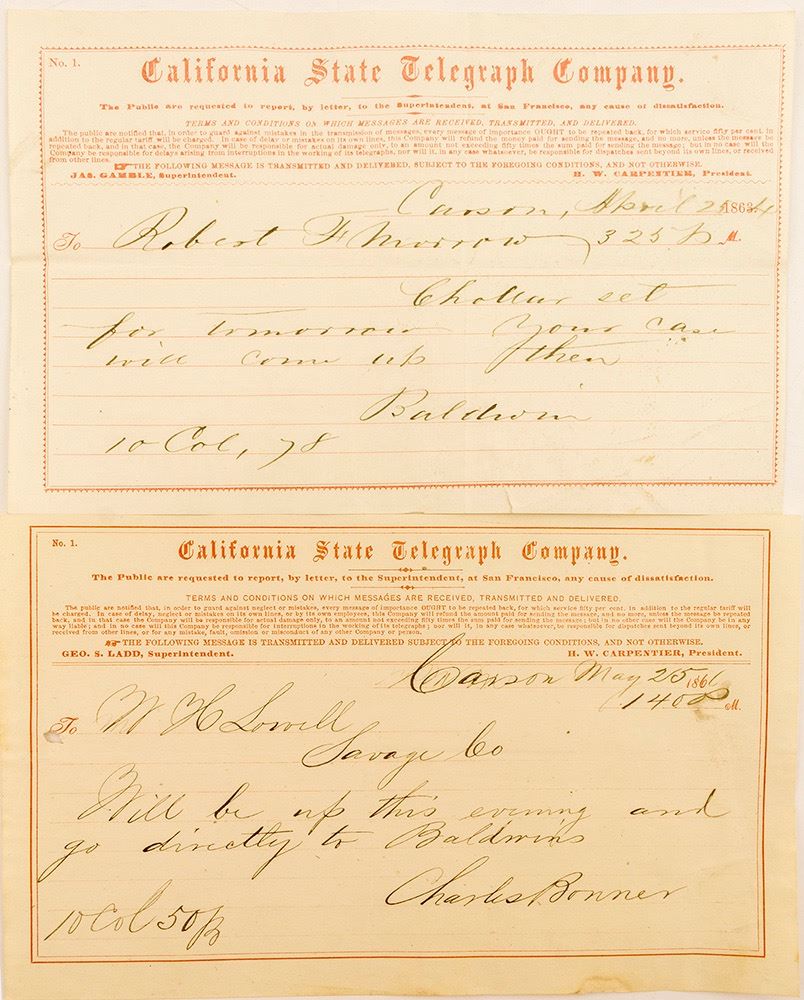 No. 1.
California State Telegraph Company.
The Public are requested to report, by letter, to the Superintendent, at San Francisco, any cause of dissatisfaction.
TERMS AND CONDITIONS ON WHICH MESSAGES ARE RECEIVED, TRANSMITTED, AND DELIVERED.
The public are notified that, in order to guard against mistakes in the transmission of messages, every message of importance OUGHT to be repeated back, for which service fifty per cent. in
addition to the regular tariff will be charged. In case of delay or mistakes on its own lines, this Company will refund the money paid for sending the message, and no more, unless the message be
repeated back, and in that case, the Company will be responsible for actual damage only, to an amount not exceeding fifty times the sum paid for sending the message; but in no case will the
Company be responsible for delays arising from interruptions in the working of its telegraphs, nor will it, in any case whatsoever, be responsible for dispatches sent beyond its own lines, or received
from other lines.
THE FOLLOWING MESSAGE IS TRANSMITTED AND DELIVERED, SUBJECT TO THE FOREGOING CONDITIONS, AND NOT OTHERWISE.
JAS. GAMBLE, Superintendent. H. W. CARPENTIER, President.
Carson, April 25 1863. 4
To Robert F Morrow 325 P M.
Chollar set
for tomorrow Your case
will come up then
Baldwin
10 Col, 78
No. 1.
California State Telegraph Company.
The Public are requested to report, by letter, to the Superintendent, at San Francisco, any cause of dissatisfaction.
TERMS AND CONDITIONS ON WHICH MESSAGES ARE RECEIVED, TRANSMITTED AND DELIVERED.
The public are notified that, in order to guard against neglect or mistakes, every message of importance OUGHT to be repeated back, for which service fifty per cent. in addition to the regular tariff will
be charged. In case of delay, neglect or mistakes on its own lines, or by its own employees, this Company will refund the amount paid for sending the message, and no more, unless the message be repeated
back, and in that case the Company will be responsible for actual damage only, to an amount not exceeding fifty times the sum paid for sending the message; but in no other case will the Company be in any
way liable; and in no case will this Company be responsible for interruptions in the working of its telegraph lines; nor will it, in any case whatsoever, be responsible for dispatches sent beyond its own lines, or
received from other lines, or for any mistake, fault, omission or misconduct of any other Company or person.
THE FOLLOWING MESSAGE IS TRANSMITTED AND DELIVERED SUBJECT TO THE FOREGOING CONDITIONS, AND NOT OTHERWISE.
GEO. S. LADD, Superintendent. H. W. CARPENTIER, President.
Carson May 25 186
140 P M.
To W H Lowell
Savage Co
Will be up this evening and
go directly to Baldwins
Charles Bonner
10 Col 50